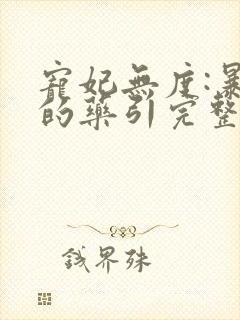 寵妃無度:暴
的藥引完整
錢界殊